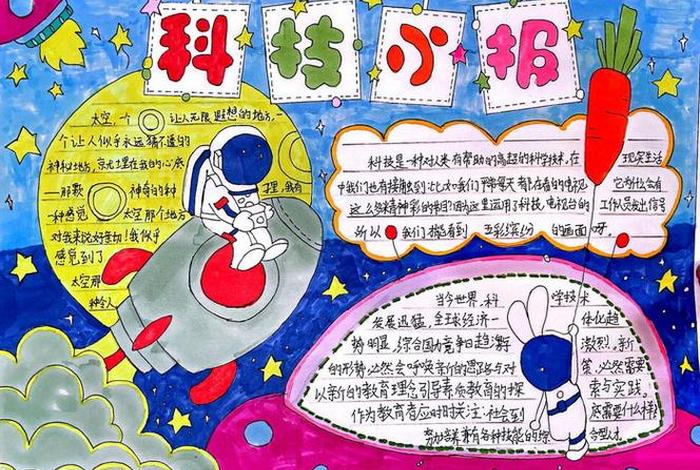 科技小报
太空,一个 让人无限遐想的地方,一
个让人似乎永远猜不透的
神秘地方,它早早在我的心底
一那颗 神奇的种 子里,我有
一种感觉 太空那个地方
对我来说好亲切!我似乎
感觉到了
太空那
种令人
科技是一种对人来有帮助的高超的科学技术,在 现实生活
中我们也有接触到:比如我们平常每天都在看的电视 它为什么会有
这么多精神彩的节目?因为这里运用了科技,电视台的 工作人员发出信号
所以 我们才能看到 五彩缤纷 的画面呀。
当今世界,科 学技术
发展迅猛,全球经济一 体化趋
势明显,综合国力竞争日趋 激烈,新
的形势必然会呼唤新的思路与对 策,必然需要
以新的教育理念引导素质教育的探 索与实践,
作为教育者应时时关注:社会到 底需要什么样
努力培养有各种技能的综 合型人才